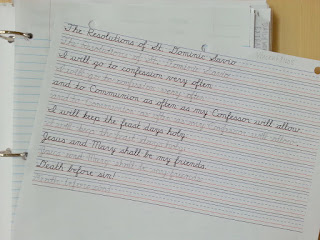 The Resolutions of St. Dominic Savio
The Resolutions of St. Dominic Savio
I will go to confession very often
I will go to confession very often
and to Communion as often as my Confessor will allow
and to Communion as often as my Confessor will allow
I will keep the feast days holy
I will keep the feast days holy
Jesus and Mary shall be my friends.
Jesus and Mary shall be my friends.
Death before sin!
Death before sin!